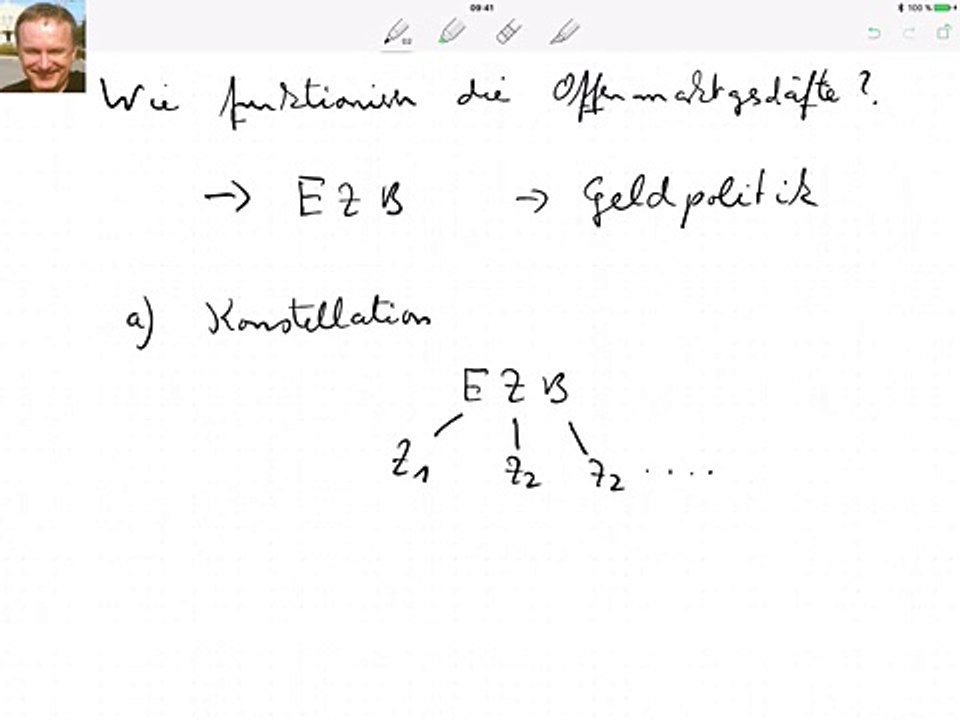 09:41
100 %
02
Wie funktionieren die Offenmarktgeschäfte?
→ EZB → Geldpolitik
a) Konstellation
EZB
Z1 Z2 Z2 ....